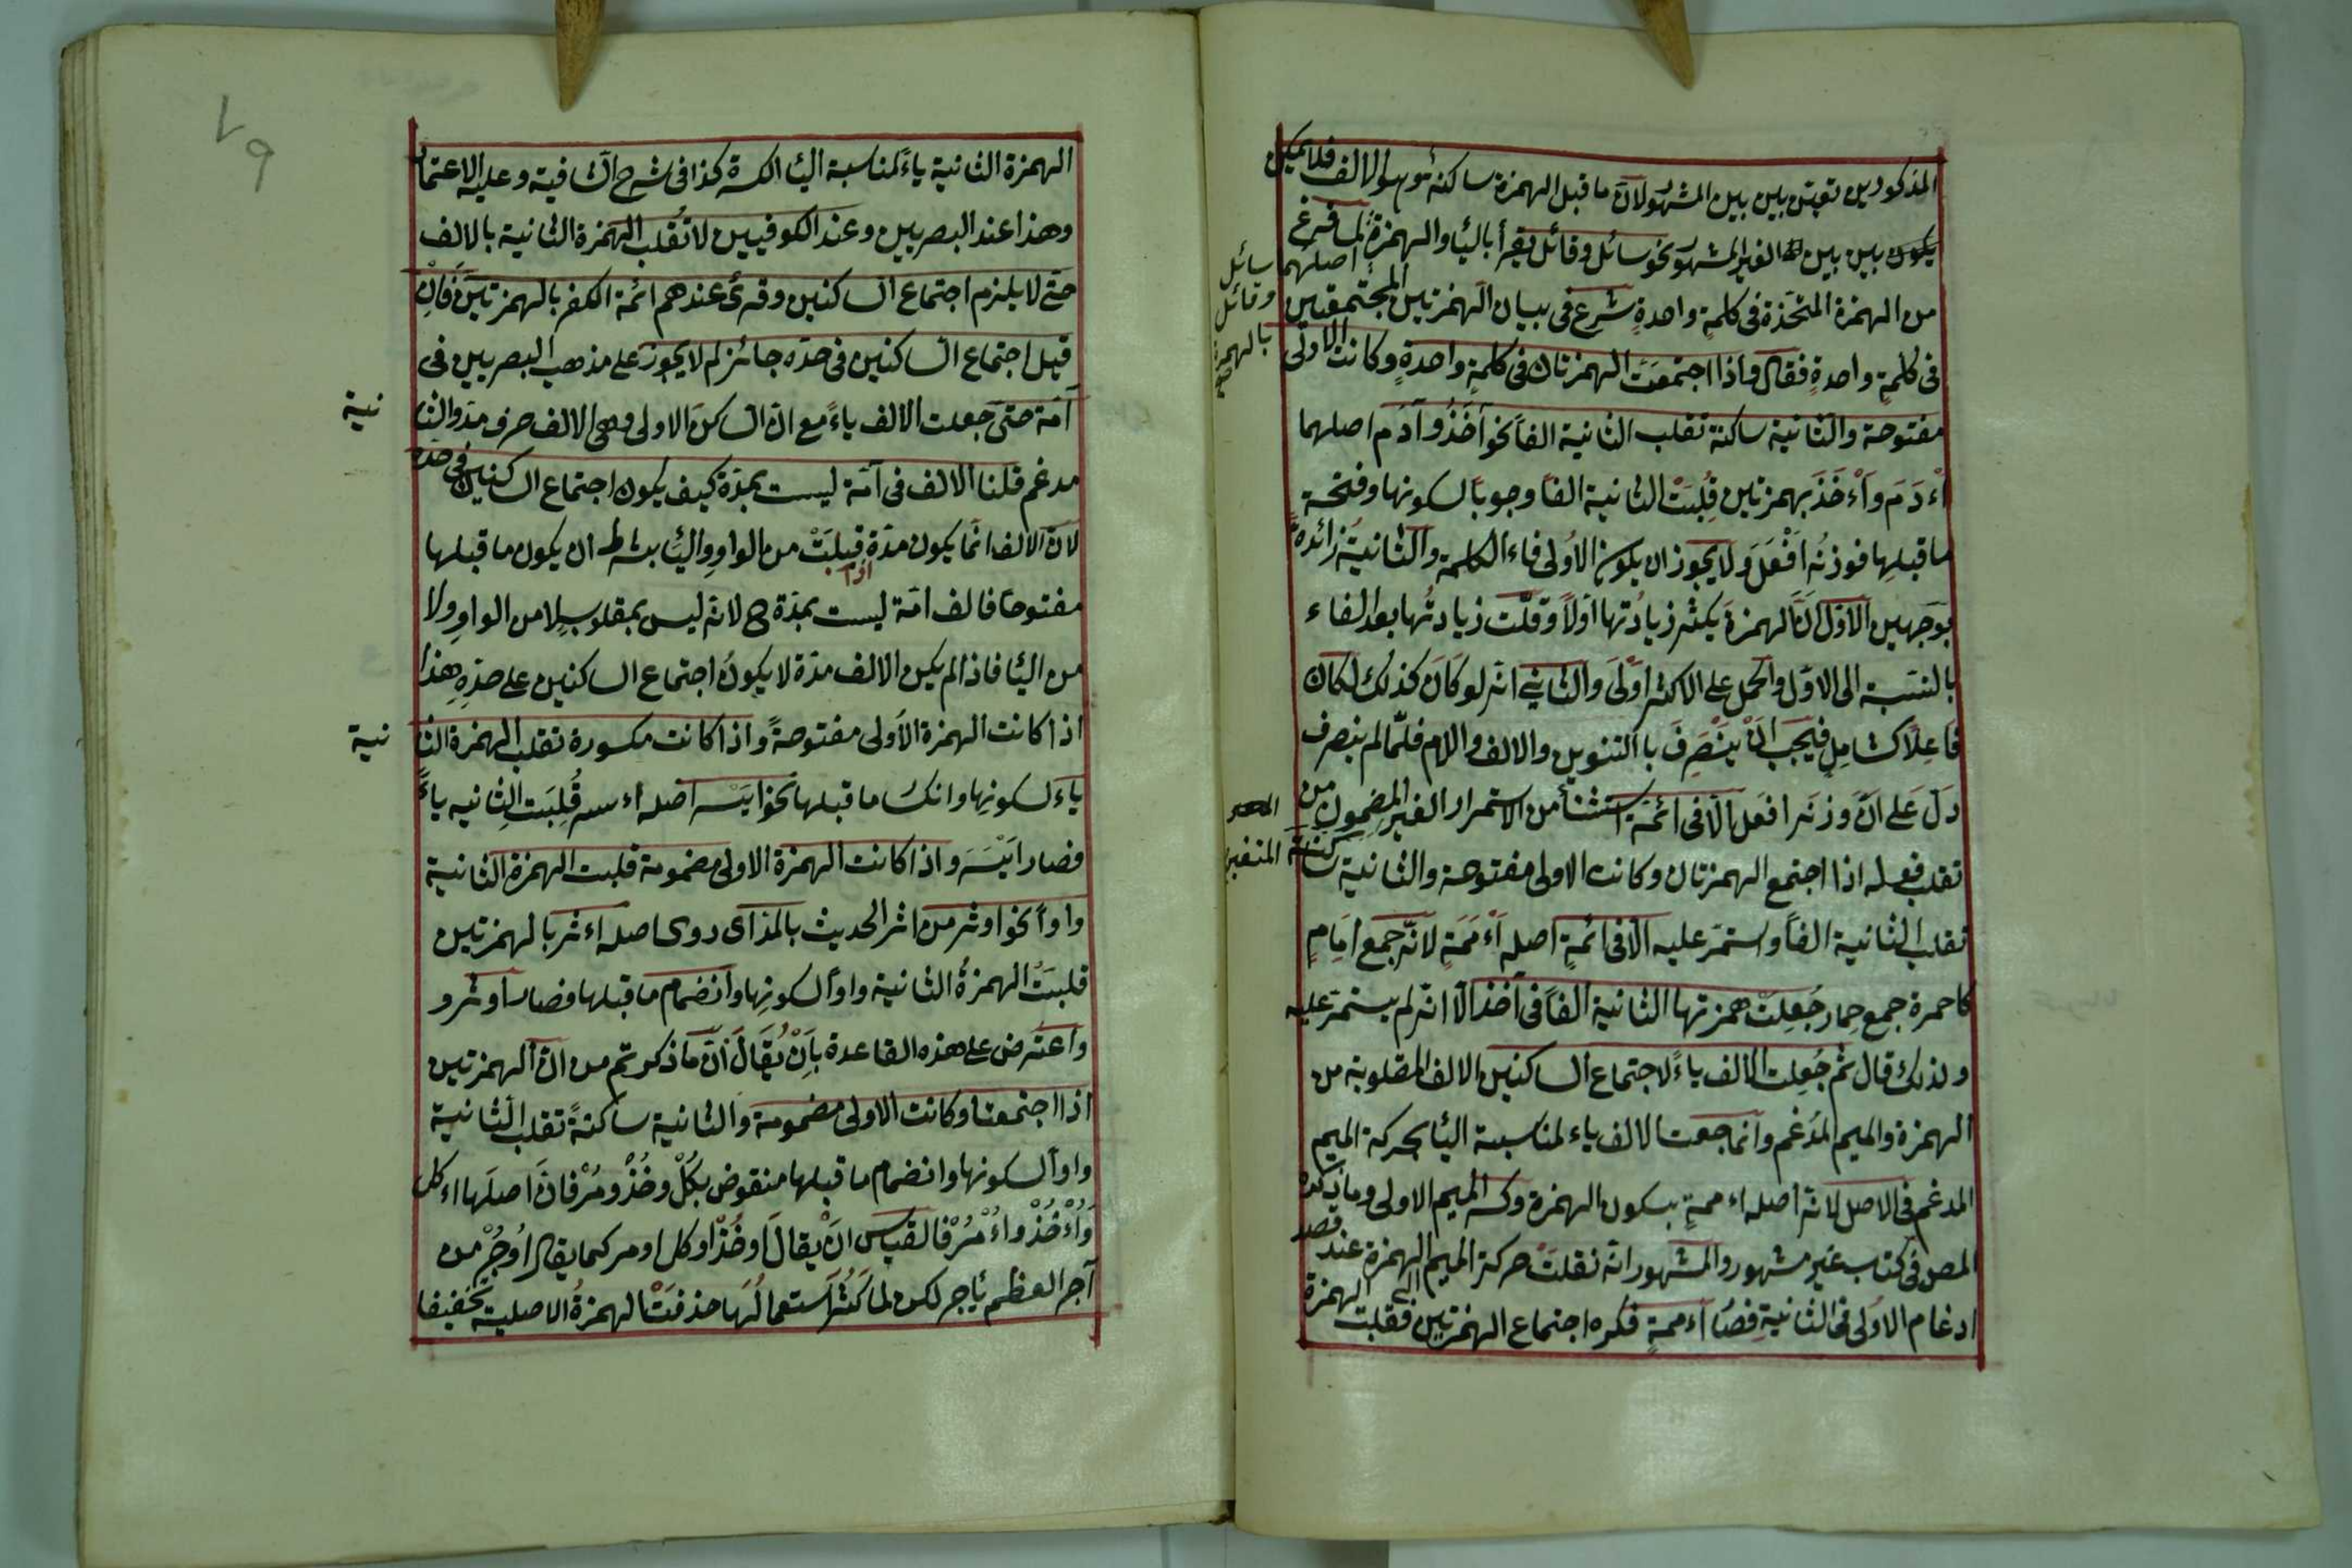 المذكورين تعين بين بين المشهور لان ما قبل الهمزة ساكنة وهو الالف فلا يمكن
يكون بين بين الغير المشهور نحو سائل وقائل يقرأ بالياء والهمزة لما فرغ
اصلهما سائل
وقائل
بالهمزة
من الهمزة المتخذة في كلمة واحدة شرع في بيان الهمزتين المجتمعتين
في كلمة واحدة فقال واذا اجتمعت الهمزتان في كلمة واحدة وكانت الاولى
مفتوحة والثانية ساكنة تقلب الثانية الفا نحو آخذ وآدم اصلهما
اءْدَمَ واءْخَذَ بهمزتين قُلِبَتْ الثانية الفا وجوبا لسكونها وفتحة
ما قبلها فوزنه افْعَلَ ولا يجوز ان يكون الاولى فاء الكلمة والثانية زائدة
بوجهين الاول ان الهمزة يكثر زيادتها اولا وقلّت زيادتها بعد الفاء
بالنسبة الى الاوّل والحمل على الاكثر اولى والثاني انه لو كان كذلك لكان
فاعلا كشامل فيجب ان ينصرف با التنوين والالف واللام فلمّا لم ينصرف
دل على انّ وزنه افعل الّا في ائمة استثنأ من الاستمرار الغير المضمون من
تقلب فعله اذا اجتمع الهمزتان وكانت الاولى مفتوحة والثانية ساكنة
تقلب الثانية الفا واستمر عليه الّا في ائمة اصله أءْمَمَة لانّه جمع امام
كاحمرة جمع حمار جُعِلَتْ همزتها الثانية الفا في آخذ الّا انّه لم يستمر عليه
ولذلك قال ثم جُعِلت الالف ياء لاجتماع الساكنين الالف المقلوبة من
الهمزة والميم المدغم وانما جعت الالف ياء لمناسبة الياء بحركة الميم
المدغم في الاصل لانه اصله اءممة بسكون الهمزة وكسر الميم الاولى وما ذكره
المص في كتاب غير مشهور والمشهور انه نقلت حركة الميم الى الهمزة عند قصد
ادغام الاولى في الثانية فصار اءممة فكره اجتماع الهمزتين فقلبت الهمزة
٧٩
الهمزة الثانية ياءً لمناسبة الياء الكسرة كذا في شرح الشافية وعليه الاعتماد
وهذا عند البصريين وعند الكوفيين لا تُقلب الهمزة الثانية بالالف
حتى لا يلزم اجتماع الساكنين وقرئ عندهم ائمة الكفر بالهمزتين فان
قيل اجتماع الساكنين في حده جائز لم لا يجوز على مذهب البصريين في
آمّة حتى جعلت الالف ياءً مع انّ الساكن الاولى وهى الالف حرف مد والثا
نية
مدغم قلنا الالف في آمّة ليست بمدّة كيف يكون اجتماع الساكنين في حده
لانّ الالف انّما يكون مدّة اذا قُلِبَتْ من الواو والياء بشرط ان يكون ما قبلها
مفتوحا فالف امّة ليست بمدّة ح لانه ليس بمقلوب لا من الواو ولا
من الياء فاذا لم يكن الالف مدّة لا يكون اجتماع الساكنين على حدّه هذا
اذا كانت الهمزة الاولى مفتوحةً واذا كانت مكسورة تقلب الهمزة الثا
نية
ياء لسكونها وانكسار ما قبلها نحو ايسر اصله اءسر قُلِبَت الثانيه ياءً
فصار ايْسَر واذا كانت الهمزة الاولى مضمومة قلبت الهمزة الثانية
واواً نحو اوثر من اثر الحديث بالمد اى روى اصله اءثر بالهمزتين
قلبت الهمزةُ الثانية واواً لسكونها وانضمام ما قبلها فصار اوثر و
واعتُرض على هذه القاعدة بِأَنْ يُقَالَ انّ ما ذكرتم من انّ الهمزتين
اذا اجتمعتا وكانت الاولى مضمومة والثانية ساكنةً تقلب الثانية
واواً لسكونها وانضمام ما قبلها منقوض بكُلْ وخُذْ ومُرْ فانّ اصلها اءكل
وَاُءْخُذْ واُءْمُرْ فالقياس انْ يقالَ اوخُذْ اوكل اومر كما يقال اُوجُرْ من
آجر العظم يأجر لكن لما كَثُرَ استعمالُها حذفتْ الهمزةُ الاصلية تخفيفا